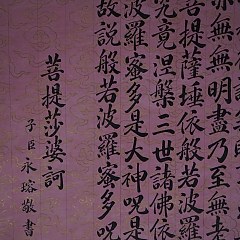 亦無無明盡乃至無老
菩提薩埵依般若波羅
究竟涅槃三世諸佛依
波羅蜜多是大神咒是
故說般若波羅蜜多咒
菩提莎婆訶
子臣永瑢敬書